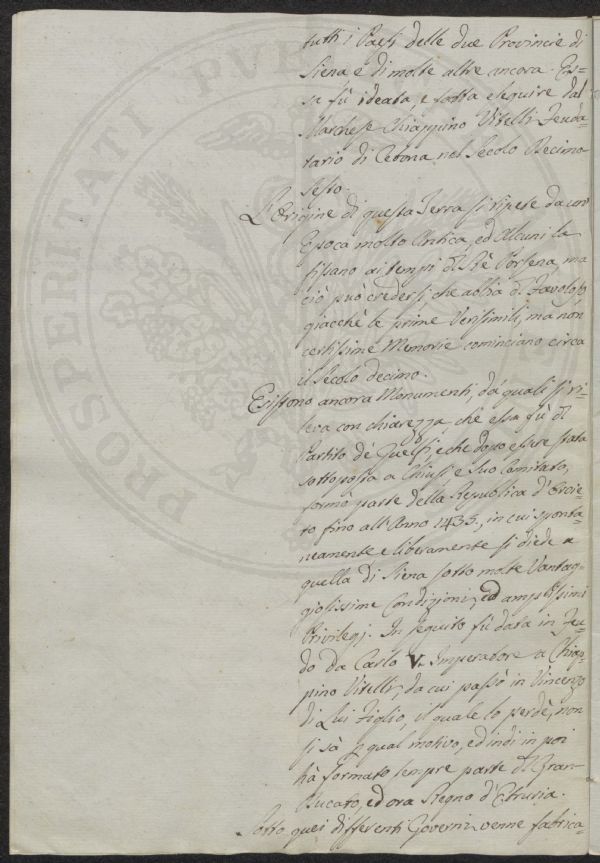 tutti i Paesi delle due Provincie di
Siena e di molte altre ancora. Es=
sa fù ideata, e fatta eseguire dal
Marchese Chiappino Vitelli Feuda=
tario di Cetona nel Secolo Decimo
sesto.
L'Origine di questa Terra si ripete da un'
Epoca molto Antica, ed Alcuni la
fissano ai tempi di Rè Porsena, ma
ciò può credersi, che abbia di Favoloso,
giacchè le prime Verisimili, ma non
certissime Memorie cominciano circa
il Secolo decimo.
Esistono ancora Monumenti, da' quali si ri=
leva con chiarezza, che essa fù di
Partito de' Guelfi, e che dopo essere stata
sottoposta a Chiusi e suo Comitato,
formò parte della Republica d'Orvie=
to fino all'Anno 1435., in cui sponta=
neamente e liberamente si diede a
quella di Siena sotto molte Vantag=
giosissime Condizioni, ed amplissimi
Privilegj. In seguito fù data in Feu=
do da Carlo V. Imperadore a Chiap=
pino Vitelli, da cui passò in Vincenzo
di Lui Figlio, il quale lo perdè, non
si sà p qual motivo, ed indi in poi
hà formato sempre parte del Gran=
Ducato, ed ora Regno d'Etruria.
Sotto quei differenti Governi venne fabrica=
PROSPERITATI PVB